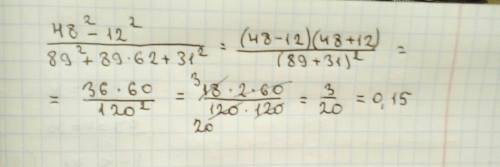 (48² - 12²)/(89² + 89·62 + 31²) = ((48-12)(48+12))/((89+31)²) =
= (36·60)/(120²) = (³18·2·60)/(120·120) = 3/20 = 0,15
20